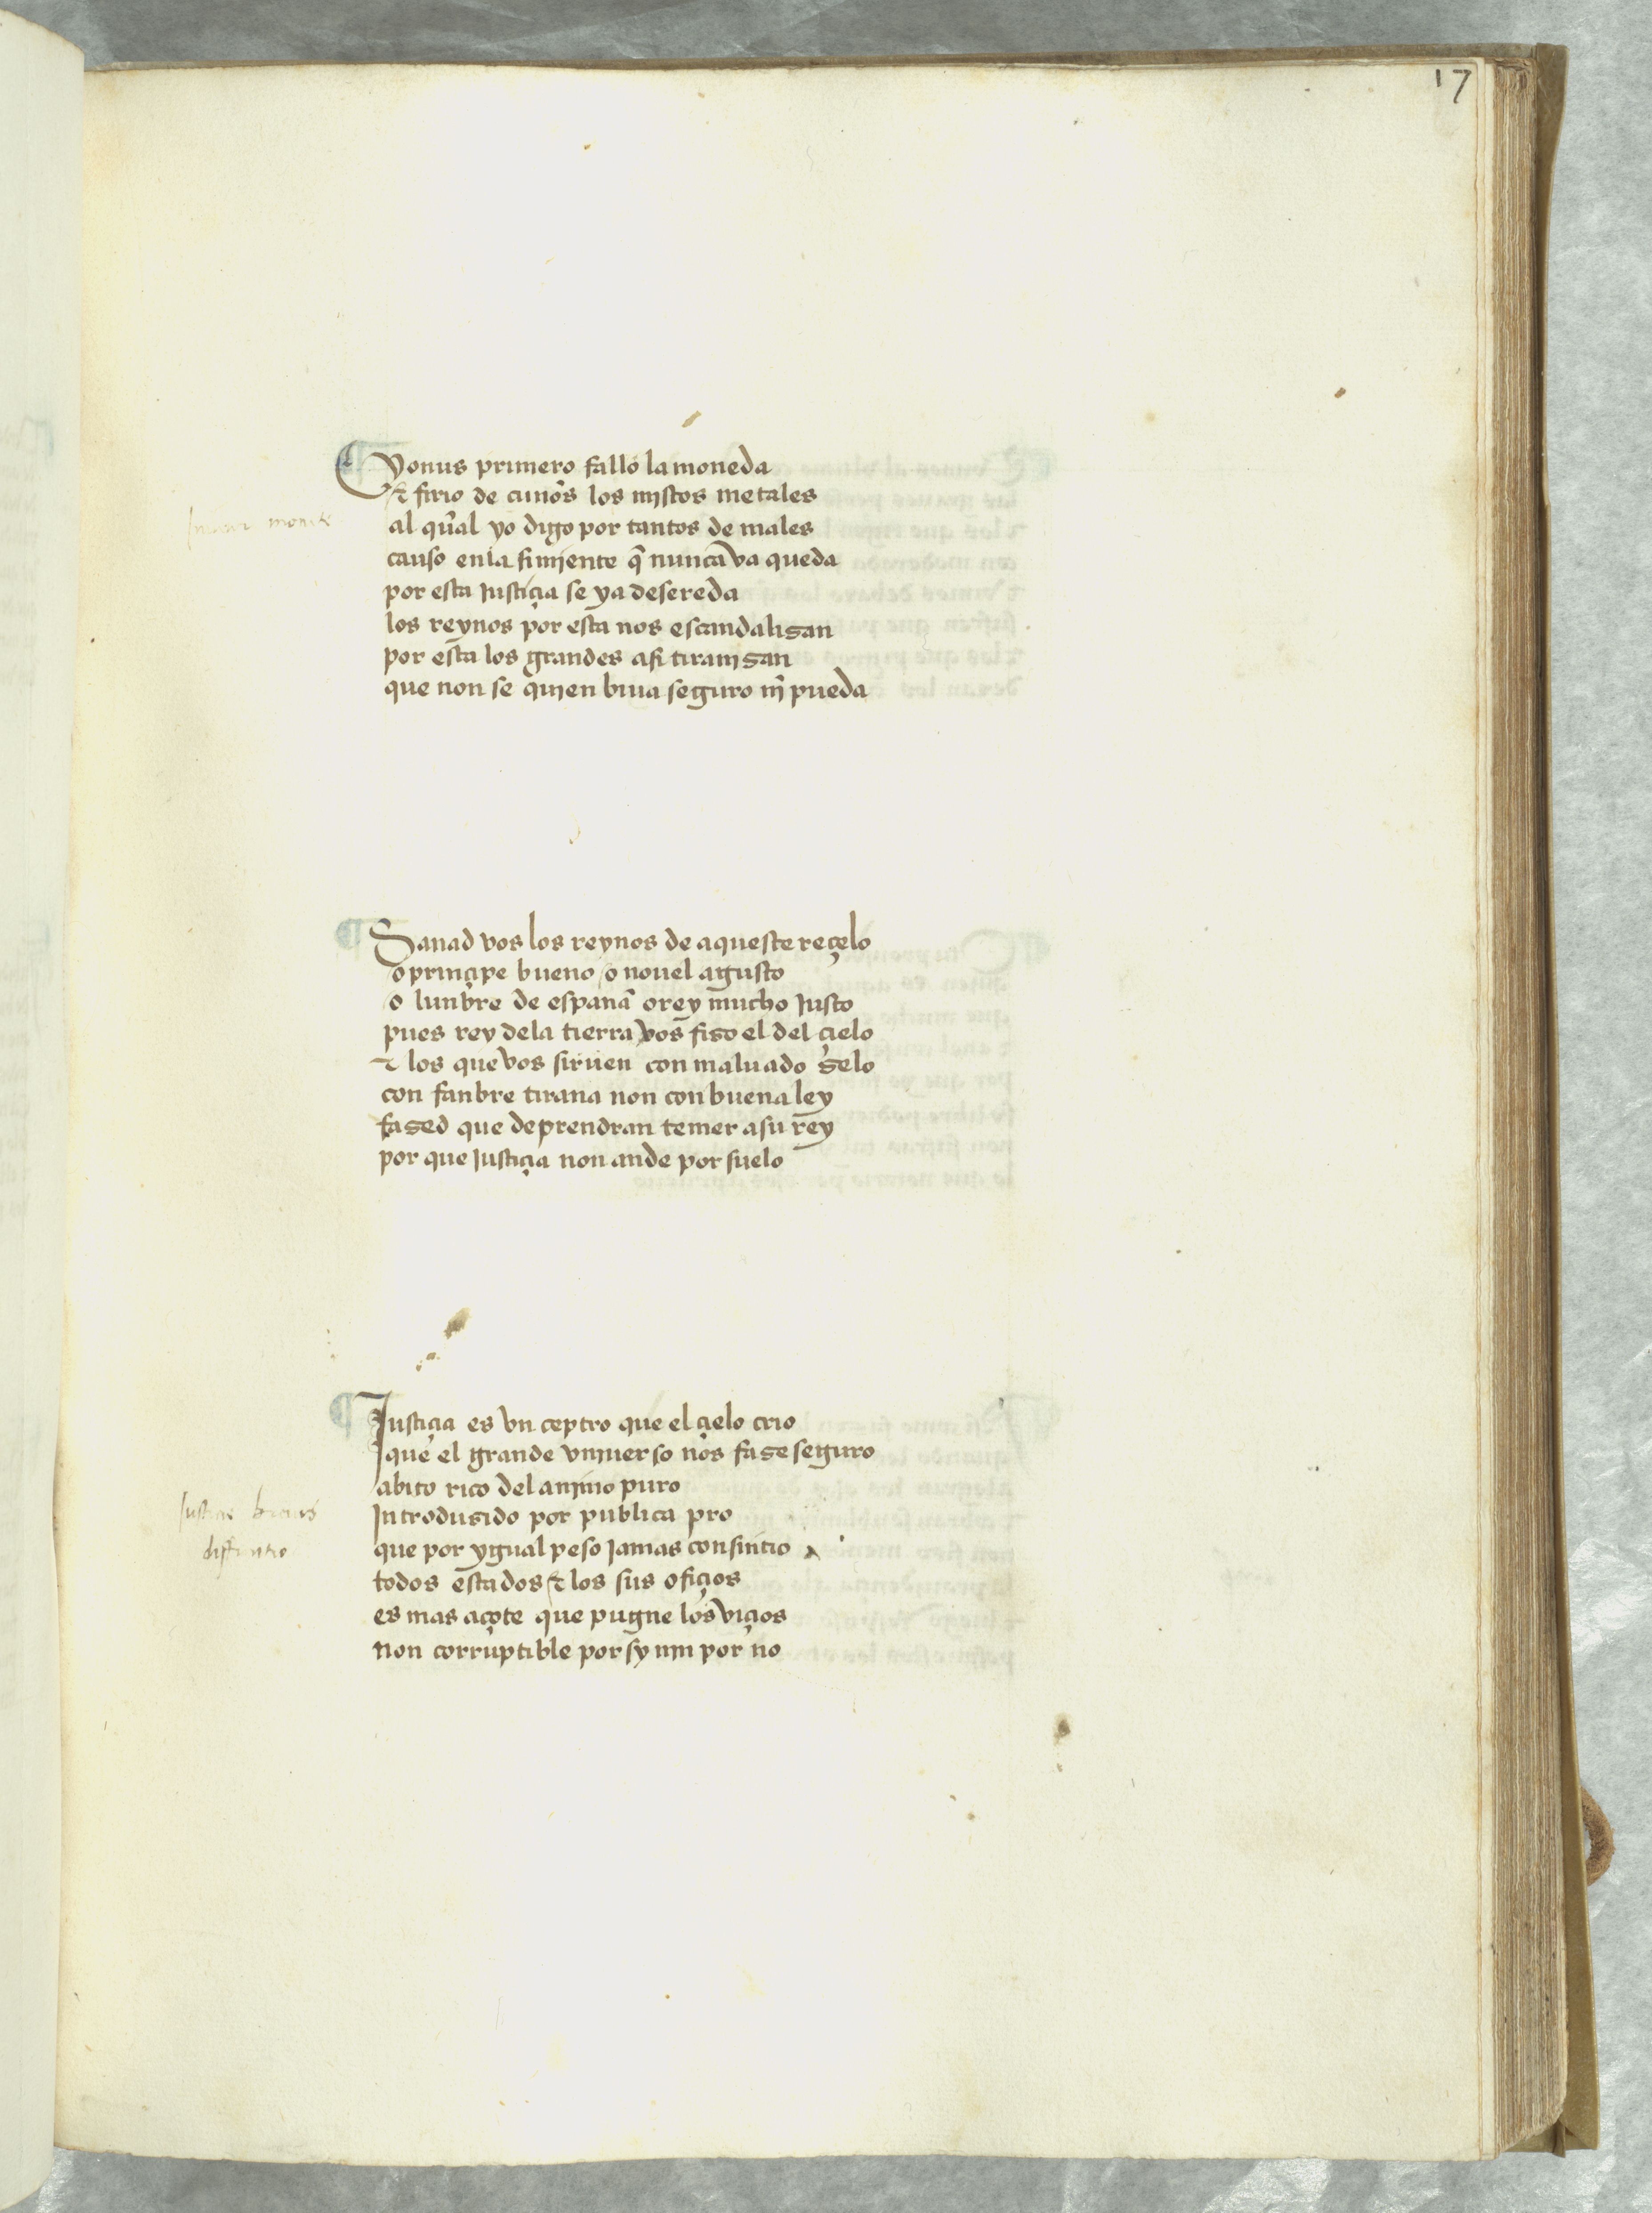 17
¶ Yonus primero fallo la moneda
& firio de cunos̃ los mistos metales
al qual yo digo por tantos de males
causo en la simiente q̃ nunca va queda
por esta Justiçia se ya desereda
los reynos por esta nos escandalisan
por esta los grandes asi tiranisan
que non se quien biua seguro nĩ pueda
¶ Sanad vos los reynos de aqueste reçelo
o prinçipe bueno o nouel agusto
o lunbre de espanã o rey mucho Justo
pues rey dela tierra vos fiso el del çielo
& los que vos siruen con maluado gelo
con fanbre tirana non con buena ley
fased que deprendran temer a su rey
por que Justiçia non ande por suelo
¶ Justiçia es vn ceptro que el çielo crio
que el grande vniuerso nos fase seguro
abito rico del animo puro
Introdusido por publica pro
Justicie breuis
que por ygual peso Jamas consintio
todos estados & los sus ofiçios
es mas açote que pugne los viçios
non corruptible por sy nin por no